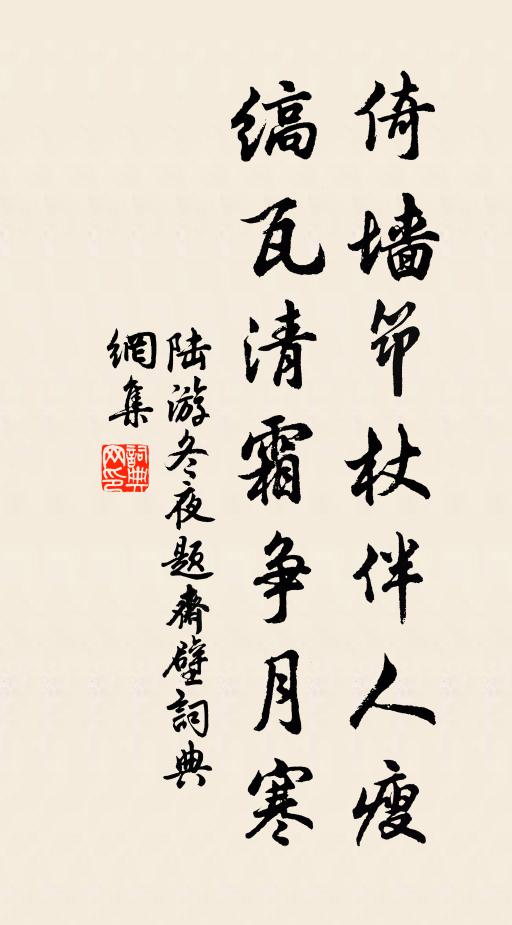 倚墙筇杖伴人瘦
缟瓦清霜争月寒
陆游冬夜题斋壁詞典
網集
詞典
网印